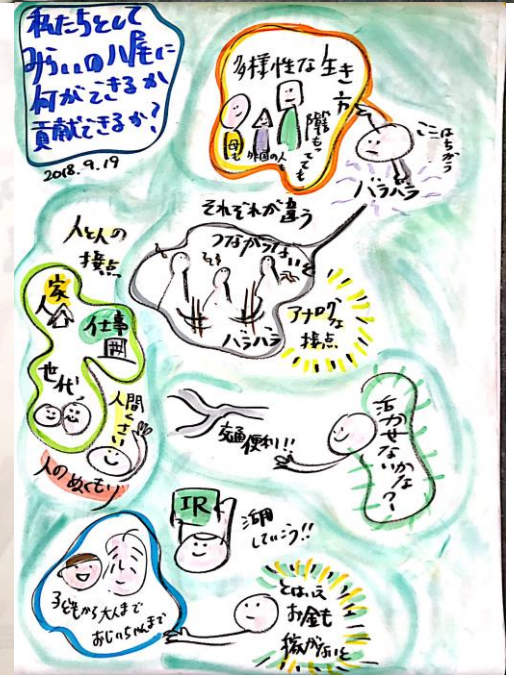 私たちとして
みらいの八尾に
何ができるか
貢献できるか?
2018.9.19
多様性な生き
方を
母も
外国の人も
障害もってても
ここはちがう
バラバラ
それぞれが違う
つながらない
バラバラ
アナログな
接点
人と人の
接点
家
人
仕事
世代
人間くさい
人のぬくもり
交通便利!!
活かせないかな〜?
IR
活用
していこう!!
子どもから大人まで
おじいちゃんまで
とはいえ
お金も
稼がないと